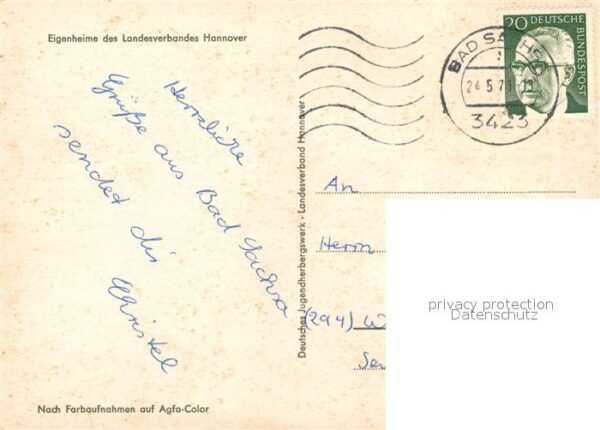 Eigenheime des Landesverbandes Hannover
Herzliche
Grüße aus Bad Sachsa
sendet dir
Christel
Nach Farbaufnahmen auf Agfa-Color
Deutsches Jugendherbergswerk - Landesverband Hannover
BAD SACHS
24.5.71
3423
20 DEUTSCHE
BUNDESPOST
An
Herrn
(294) W
privacy protection
Datenschutz